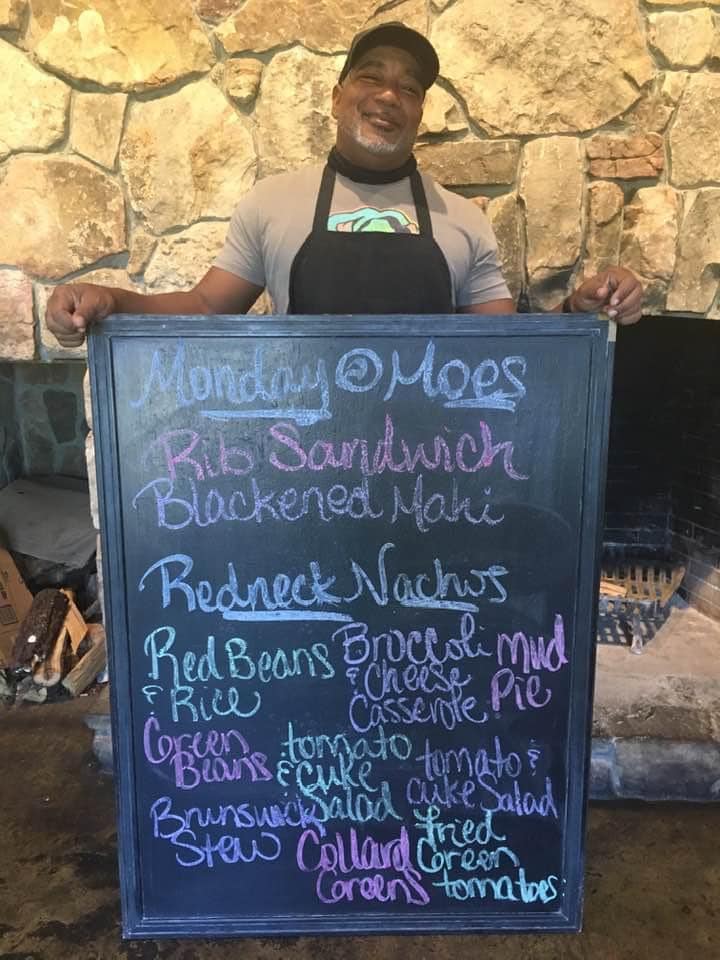 Monday @ Moes
Rib Sandwich
Blackened Mahi
Redneck Nachos
Red Beans
& Rice
Broccoli
& Cheese
Casserole
Mud
Pie
Green
Beans
tomato
& cuke
Salad
tomato &
cuke Salad
Brunswick
Stew
Collard
Greens
fried
Green
tomatoes